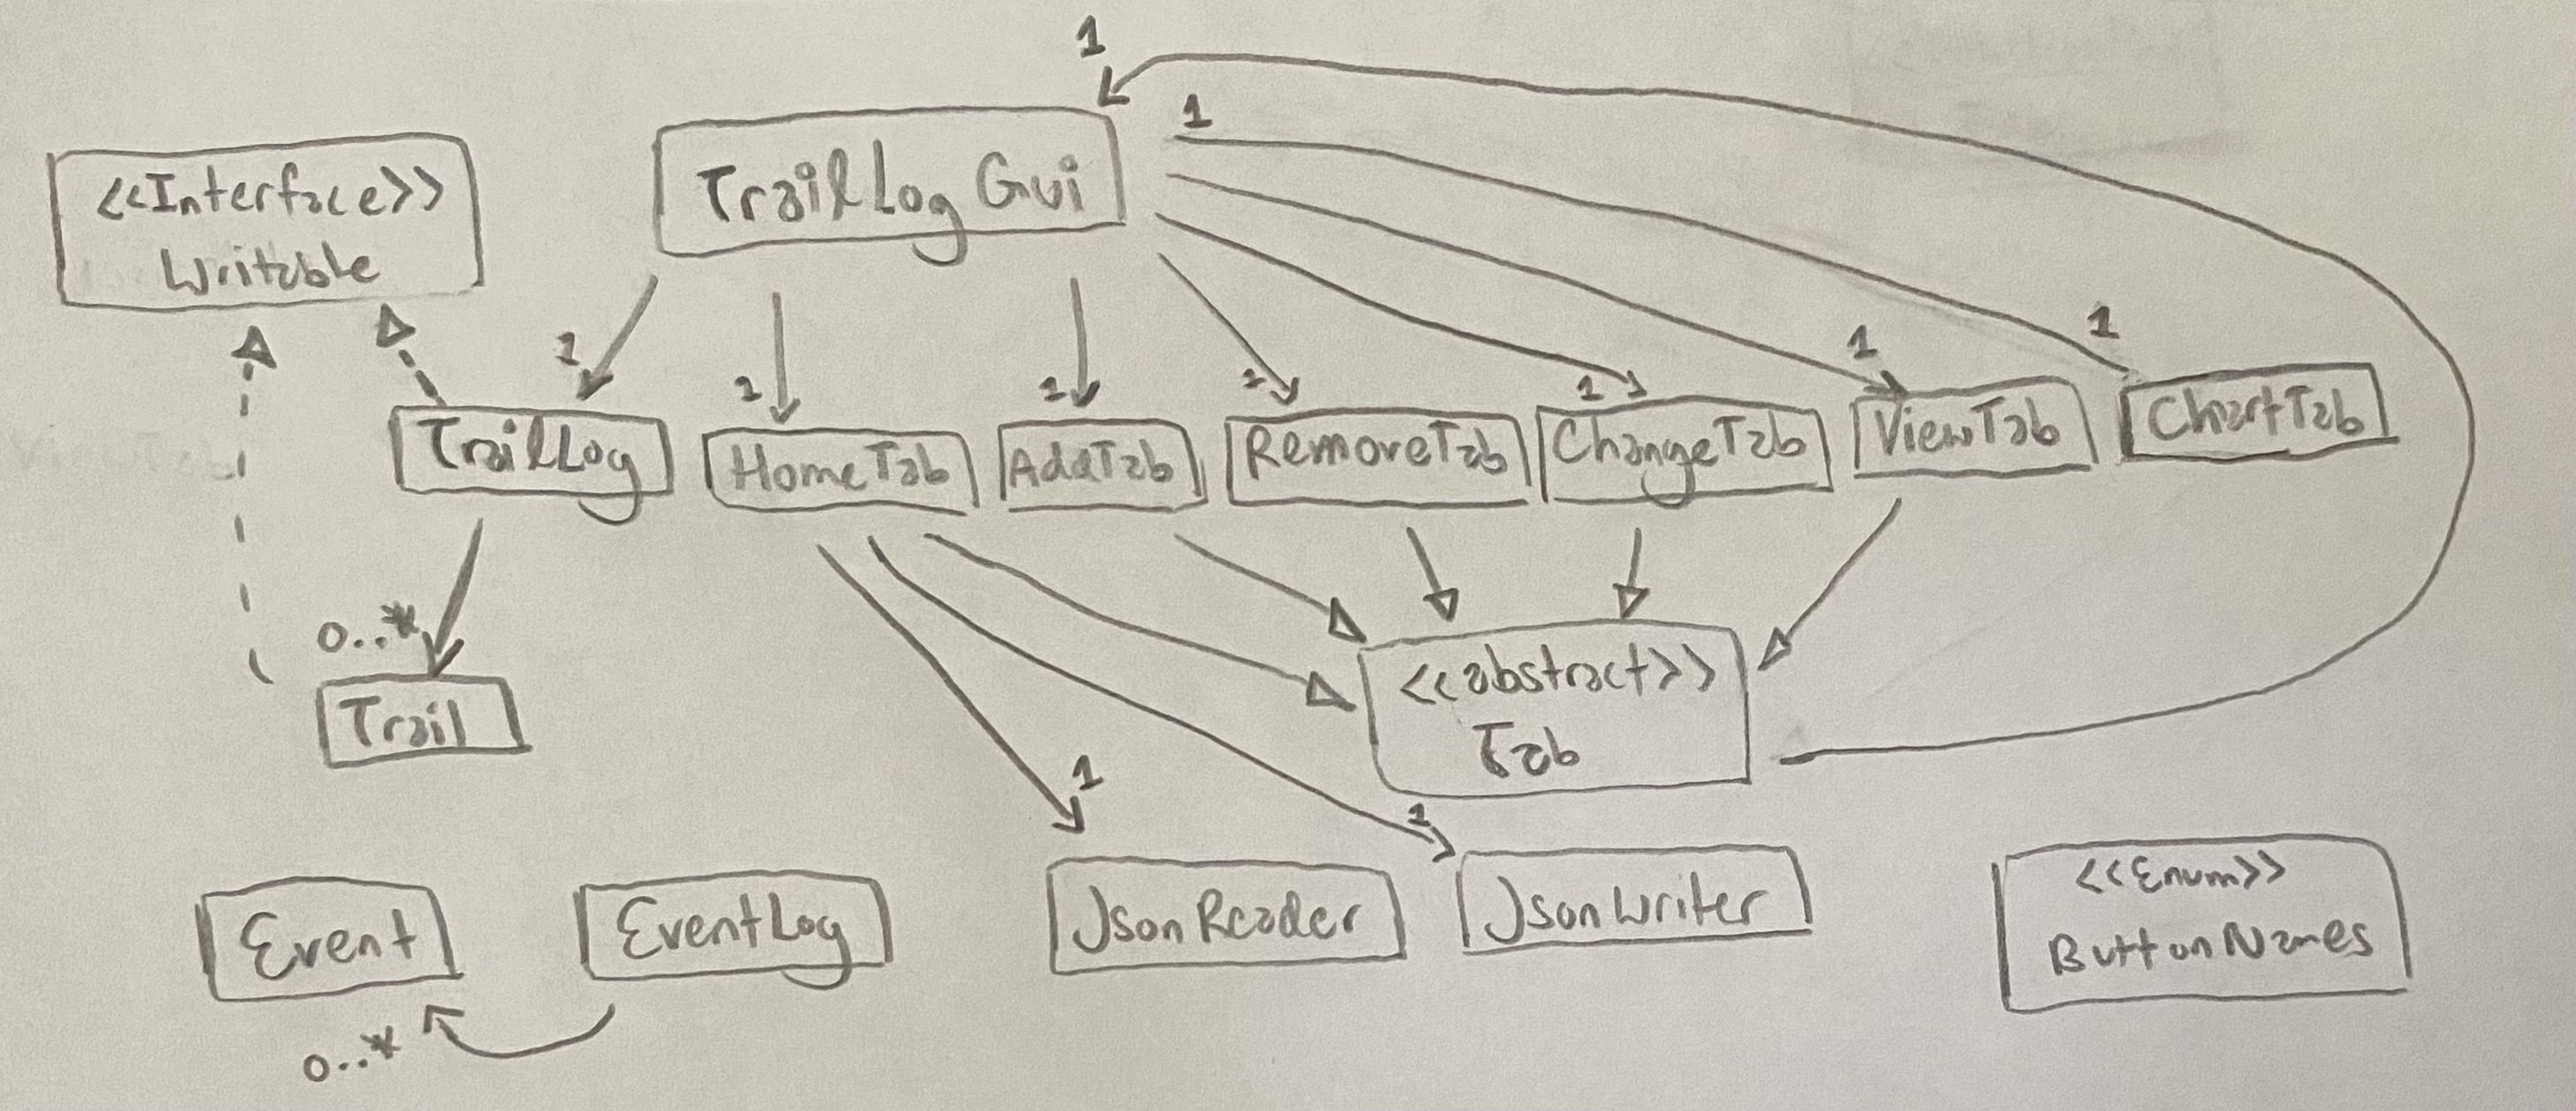 1
1
<<Interface>>
Writable
TrailLog Gui
1
1
1
1
1
1
1
TrailLog
HomeTab
AddTab
RemoveTab
ChangeTab
ViewTab
ChartTab
0..*
Trail
<<abstract>>
Tab
1
1
Event
EventLog
JsonReader
JsonWriter
<<Enum>>
ButtonNames
0..*